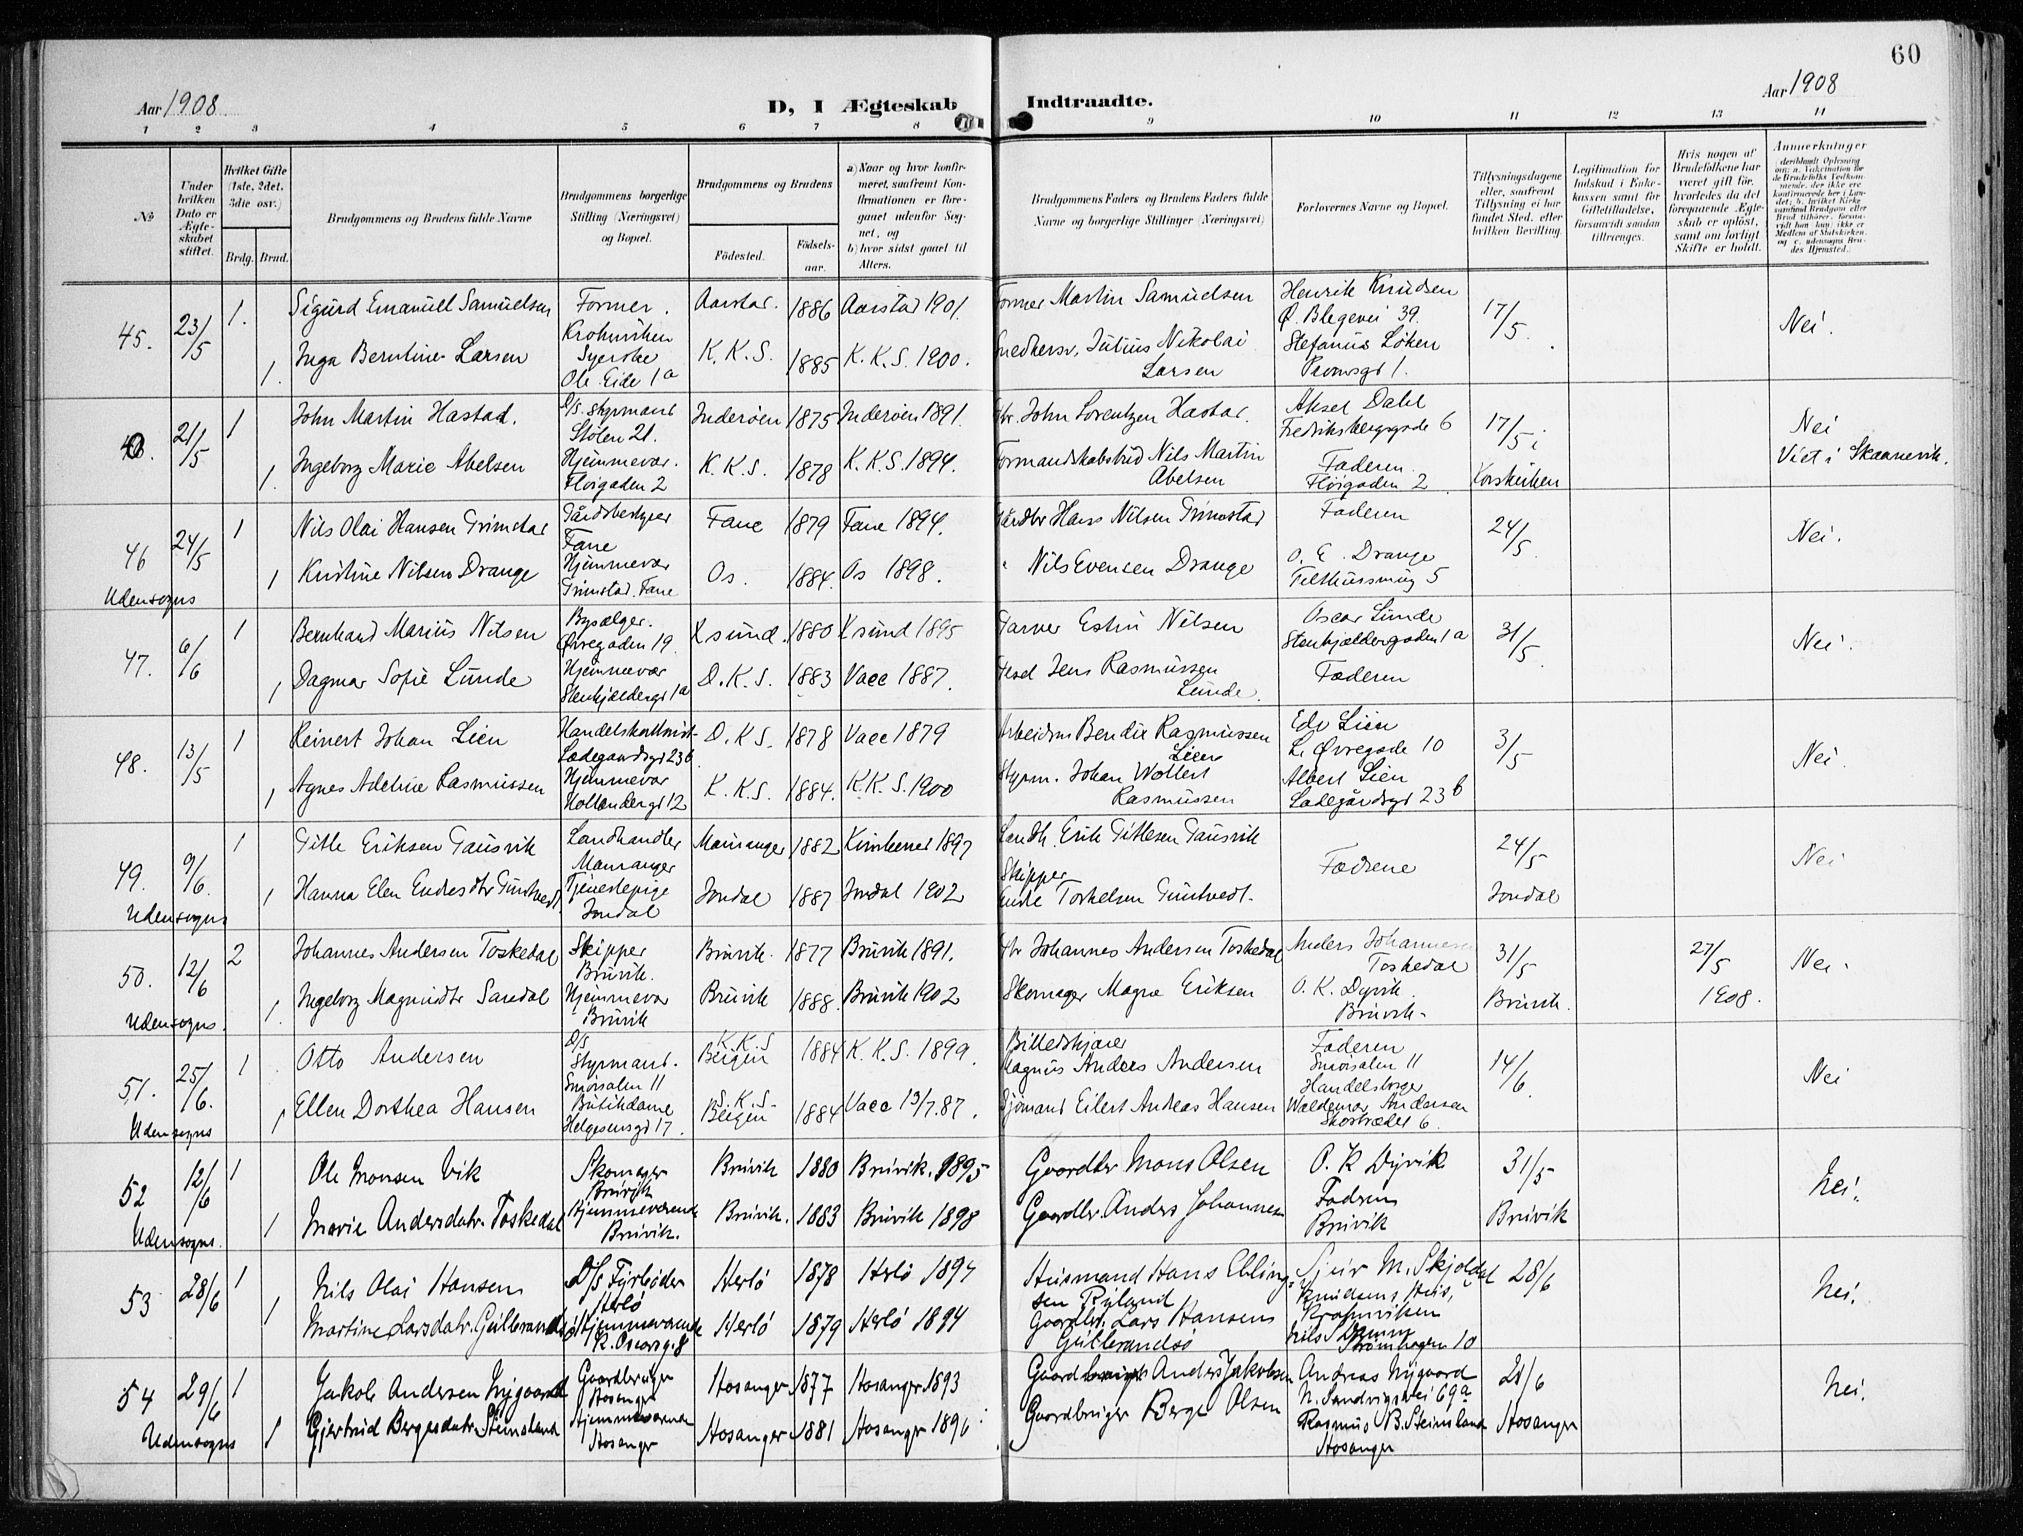 60
Aar 1908.
D, I Ægteskab Indtraadte.
Aar 1908
1 2 3 4 5 6 7 8 9 10 11 12 13 14
№
Under hvilken Dato er Ægteskabet stiftet.
Hvilket Gifte (1ste, 2det, 3die osv.)
Brdg. Brud.
Brudgommens og Brudens fulde Navne
Brudgommens borgerlige Stilling (Næringsvei) og Bopæl.
Brudgommens og Brudens
Fødested.
Fødselsaar.
a) Naar og hvor konfirmeret, saafremt Konfirmationen er foregaaet udenfor Sognet, og
b) hvor sidst gaaet til Alters.
Brudgommens Faders og Brudens Faders fulde Navne og borgerlige Stillinger (Næringsvei)
Forlovernes Navne og Bopæl.
Tillysningsdagene eller, saafremt Tillysning ei har fundet Sted, efter hvilken Bevilling.
Legitimation for Indskud i Enkekassen samt for Giftetilladelse, forsaavidt saadan tiltrænges.
Hvis nogen af Brudefolkene har været gift før, hvorledes da det foregaaende Ægteskab er opløst, samt om lovligt Skifte er holdt.
Anmærkninger
45. 23/5 1. Sigurd Emanuel Samuelsen Former. Krohnviken Aarstad. 1886 Aarstad 1901. Former Martin Samuelsen Henrik Knudsen Ø. Blegevei 39. 17/5. Nei.
1. Inga Bentine Larsen Syerske Ole Eide 1a K. K. S. 1885 K. K. S. 1900. Snedkersv. Julius Nikolai Larsen Stefanus Løken
21/5 1 John Martin Hastad. D/S. styrmand Stølen 21. Inderøen 1875 Inderøen 1891. Gbr. John Lorentzen Hastad. Aksel Dahl Fredriksbergsgade 6 17/5 i Korskirken Nei
1. Ingeborg Marie Abelsen Hjemmevær. Fløigaden 2 K. K. S. 1878 K. K. S. 1894. Formandskabsbud Nils Martin Abelsen Faderen. Fløigaden 2 Viet i Skaanevik.
46 24/5 1 Nils Olai Hansen Grimstad Gårdsbestyrer Fane Fane 1879 Fane 1894. Gårdbr Hans Nilsen Grimstad Faderen 24/5. Nei.
Udensogns 1 Kristine Nilsen Drange Hjemmevær Grimstad. Fane Os. 1884. Os 1898. " Nils Evensen Drange O. E. Drange 5
47. 6/6 1 Bernhard Marius Nilsen Bysælger. Øvregaden 19. Ksund. 1880 Ksund 1895 Garver Nilsen Oscar Lunde Stenkjældergaden 1a 31/5. Nei.
1 Dagmar Sofie Lunde Hjemmevær Stenkjælderg 1a D. K. S. 1883 Vacc 1887. Jens Rasmussen Lunde. Faderen
48. 13/5 1 Reinert Johan Lien Ladegaardsgd 23b D. K. S. 1878 Vacc 1879 Arbeidsm Bendix Rasmussen Lien Edv Lien L. Øvregade 10 3/5 Nei.
1 Agnes Adeline Rasmussen Hjemmevær Hollendergd 12 K. K. S. 1884. K. K. S. 1900 Styrm. Johan Wollert Rasmussen Albert Lien Ladegårdsgd 23b
49. 9/6. 1 Gitle Eriksen Gausvik Landhandler Mauranger Mauranger 1882 Kvinherred 1897 Landh. Erik Gitlesen Gausvik Fædrene 24/5 Jondal Nei
Udensogns 1 Hanna Elen Endresdtr Tjenestepige Jondal Jondal 1887 Jondal 1902 Skipper Endre Torkelsen
50. 12/6 2 Johannes Andersen Toskedal Skipper Bruvik. Bruvik. 1877 Bruvik 1891. Gbr Johannes Andersen Toskedal Anders Johannesen Toskedal 31/5 Bruvik. 27/5 1908. Nei.
Udensogns. 1. Ingeborg Magnusdtr Sandal Hjemmevær Bruvik Bruvik 1888. Bruvik 1902 Skomager Magne Eriksen O. K. Dyvik. Bruvik.
51. 25/6. 1 Otto Andersen D/S Styrmand. Smørsalen 11 K. K. S Bergen 1884 K. K. S. 1899. Billedskjærer Magnus Anders Andersen Faderen Smørsalen 11 14/6. Nei
Udensogns 1 Ellen Dorthea Hansen Butikdame Helgesensgd 17. S. K. S Bergen 1884 Vacc 13/7.87. Sjømand Eilert Andreas Hansen Handelsborger Waldemar Andersen Skostrædet 6.
52 12/6 1 Ole Monsen Vik Skomager Bruvik Bruvik 1880 Bruvik. 1895 Gaardbr Mons Olsen O. K Dyvik 31/5 Bruvik Nei.
Udensogns. 1 Marie Andersdatr. Toskedal Hjemmeværende Bruvik. Bruvik. 1883 Bruvik 1898 Gaardbr. Anders Johannesen Faderen Bruvik
53 28/6 1 Nils Olai Hansen D/S Fyrbøder Herlø Herlø 1878 Herlø 1894 Husmand Hans Ellingsen Ryland Sjur M. Skjoldal Knudsens Hus, Krohnviken 28/6 Nei.
1 Martine Larsdatr. Gulbrandsø Hjemmeværende K. Oscarsg. 8 Herlø 1879 Herlø 1894 Gaardbr. Lars Hansens Gulbrandsø Nils 10
54 29/6 1 Jakob Andersen Nygaard Gaardbruger Hosanger Hosanger 1877 Hosanger 1893 Gaardbruger Anders Jakobsen Andreas Nygaard N. Sandvigsvei 69a 21/6 Hosanger Nei.
Udensogns 1 Gjertrud Bergesdatr. Steinsland Hjemmeværende Hosanger Hosanger 1881 Hosanger 1896 Gaardbruger Berge Olsen Rasmus B. Steinsland Hosanger